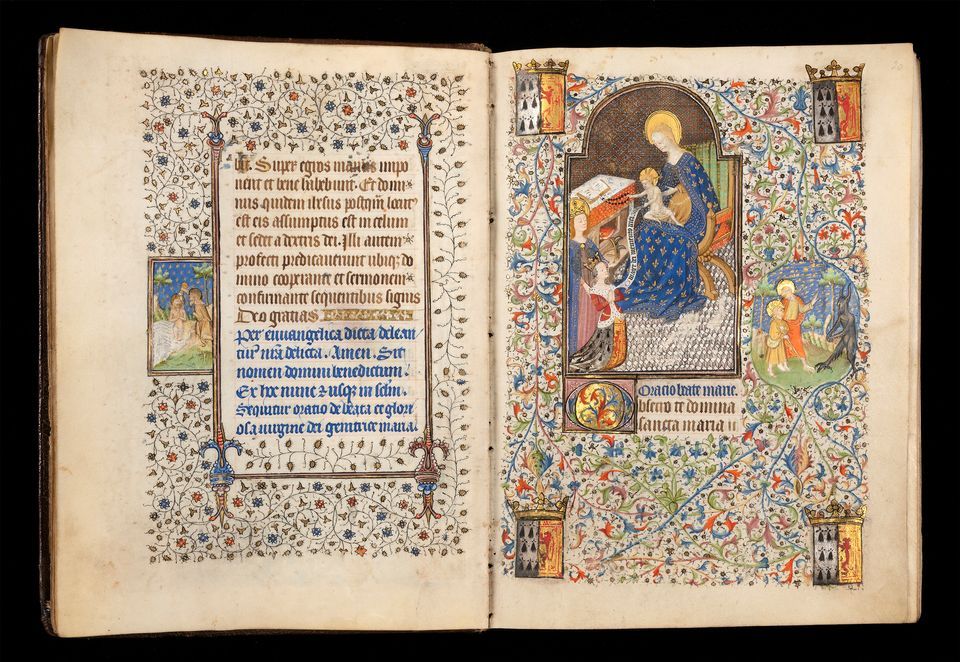 Super egros manus impo
nent et bene habebunt. Et domi
nus quidem ihesus postqm locut
est eis assumptus est in celum
et sedet a dextris dei. Illi autem
profecti predicaverunt ubiqz do
mino cooperante et sermonem
confirmante sequentibus signis
Deo gratias
Per euuangelica dicta delean
tur nrã delicta. Amen. Sit
nomen domini benedictum.
Ex hoc nunc z usqz in sclm.
Sequitur oratio de beata et glori
osa uirgine dei genitrice maria.
Oracio beate marie.
Obsecro te domina
sancta maria